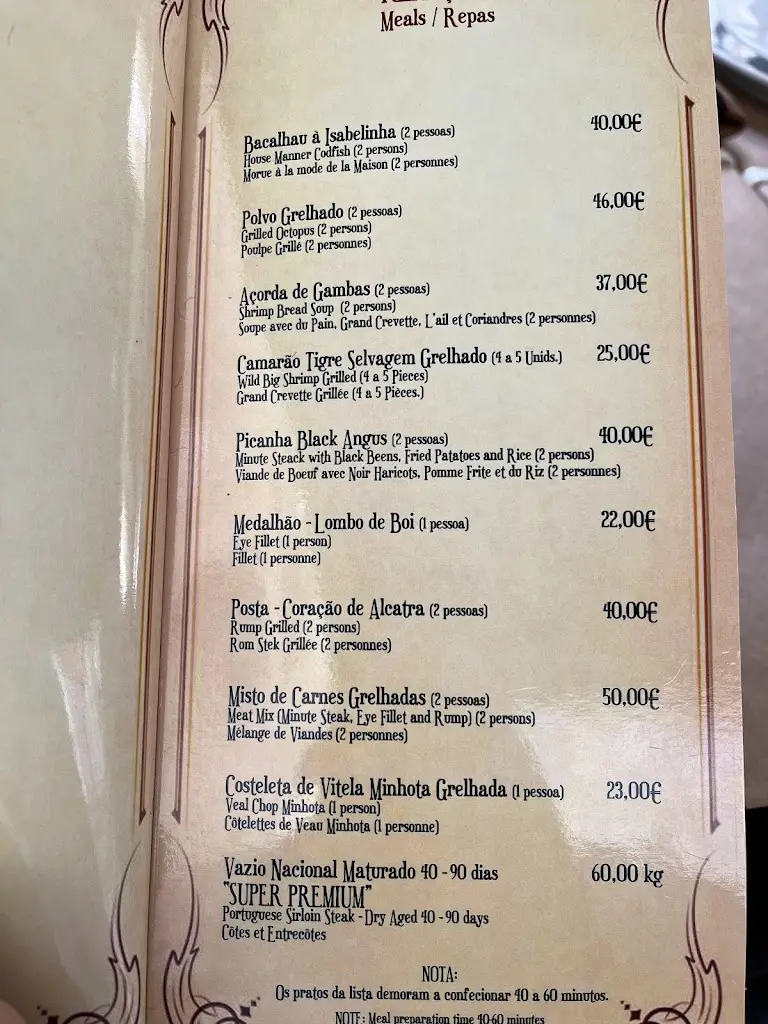 Meals / Repas
Bacalhau à Isabelinha (2 pessoas) 40,00€
House Manner Codfish (2 persons)
Morue à la mode de la Maison (2 personnes)
Polvo Grelhado (2 pessoas) 46,00€
Grilled Octopus (2 persons)
Poulpe Grillé (2 personnes)
Açorda de Gambas (2 pessoas) 37,00€
Shrimp Bread Soup (2 persons)
Soupe avec du Pain, Grand Crevette, L'ail et Coriandres (2 personnes)
Camarão Tigre Selvagem Grelhado (4 a 5 Unids.) 25,00€
Wild Big Shrimp Grilled (4 a 5 Pieces)
Grand Crevette Grillée (4 a 5 Pièces.)
Picanha Black Angus (2 pessoas) 40,00€
Minute Steack with Black Beens, Fried Patatoes and Rice (2 persons)
Viande de Boeuf avec Noir Haricots, Pomme Frite et du Riz (2 personnes)
Medalhão - Lombo de Boi (1 pessoa) 22,00€
Eye Fillet (1 person)
Fillet (1 personne)
Posta - Coração de Alcatra (2 pessoas) 40,00€
Rump Grilled (2 persons)
Rom Stek Grillée (2 personnes)
Misto de Carnes Grelhadas (2 pessoas) 50,00€
Meat Mix (Minute Steak, Eye Fillet and Rump) (2 persons)
Mélange de Viandes (2 personnes)
Costeleta de Vitela Minhota Grelhada (1 pessoa) 23,00€
Veal Chop Minhota (1 person)
Côtelettes de Veau Minhota (1 personne)
Vazio Nacional Maturado 40 - 90 dias 60,00 kg
"SUPER PREMIUM"
Portuguese Sirloin Steak - Dry Aged 40 - 90 days
Côtes et Entrecôtes
NOTA:
Os pratos da lista demoram a confecionar 40 a 60 minutos.
NOTE: Meal preparation time 40-60 minutes